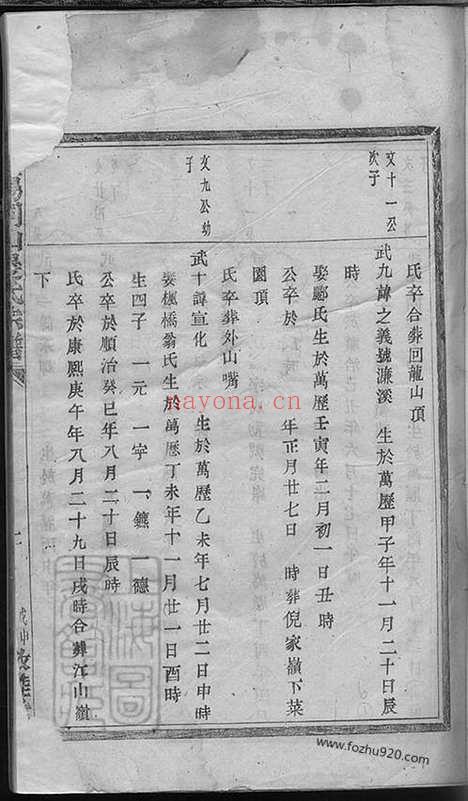 氏卒合葬回龍山頂
文十一公次子
武九諱之義號濂溪 生於萬歷甲子年十一月二十日辰
時
娶酈氏生於萬歷壬寅年二月初一日丑時
公卒於 年正月廿七日 時葬倪家嶺下菜
園頂
氏卒葬外山嘴
文九公幼子
武十諱宣化 生於萬歷乙未年七月廿二日申時
娶楓橋翁氏生於萬歷丁未年十一月廿一日酉時
生四子 一元 一字 一鑣 一德
公卒於順治癸巳年八月二十日辰時
氏卒於康熙庚午年八月二十九日戌時合葬江山嶺
下
nayona.cn
www.fozhu920.com